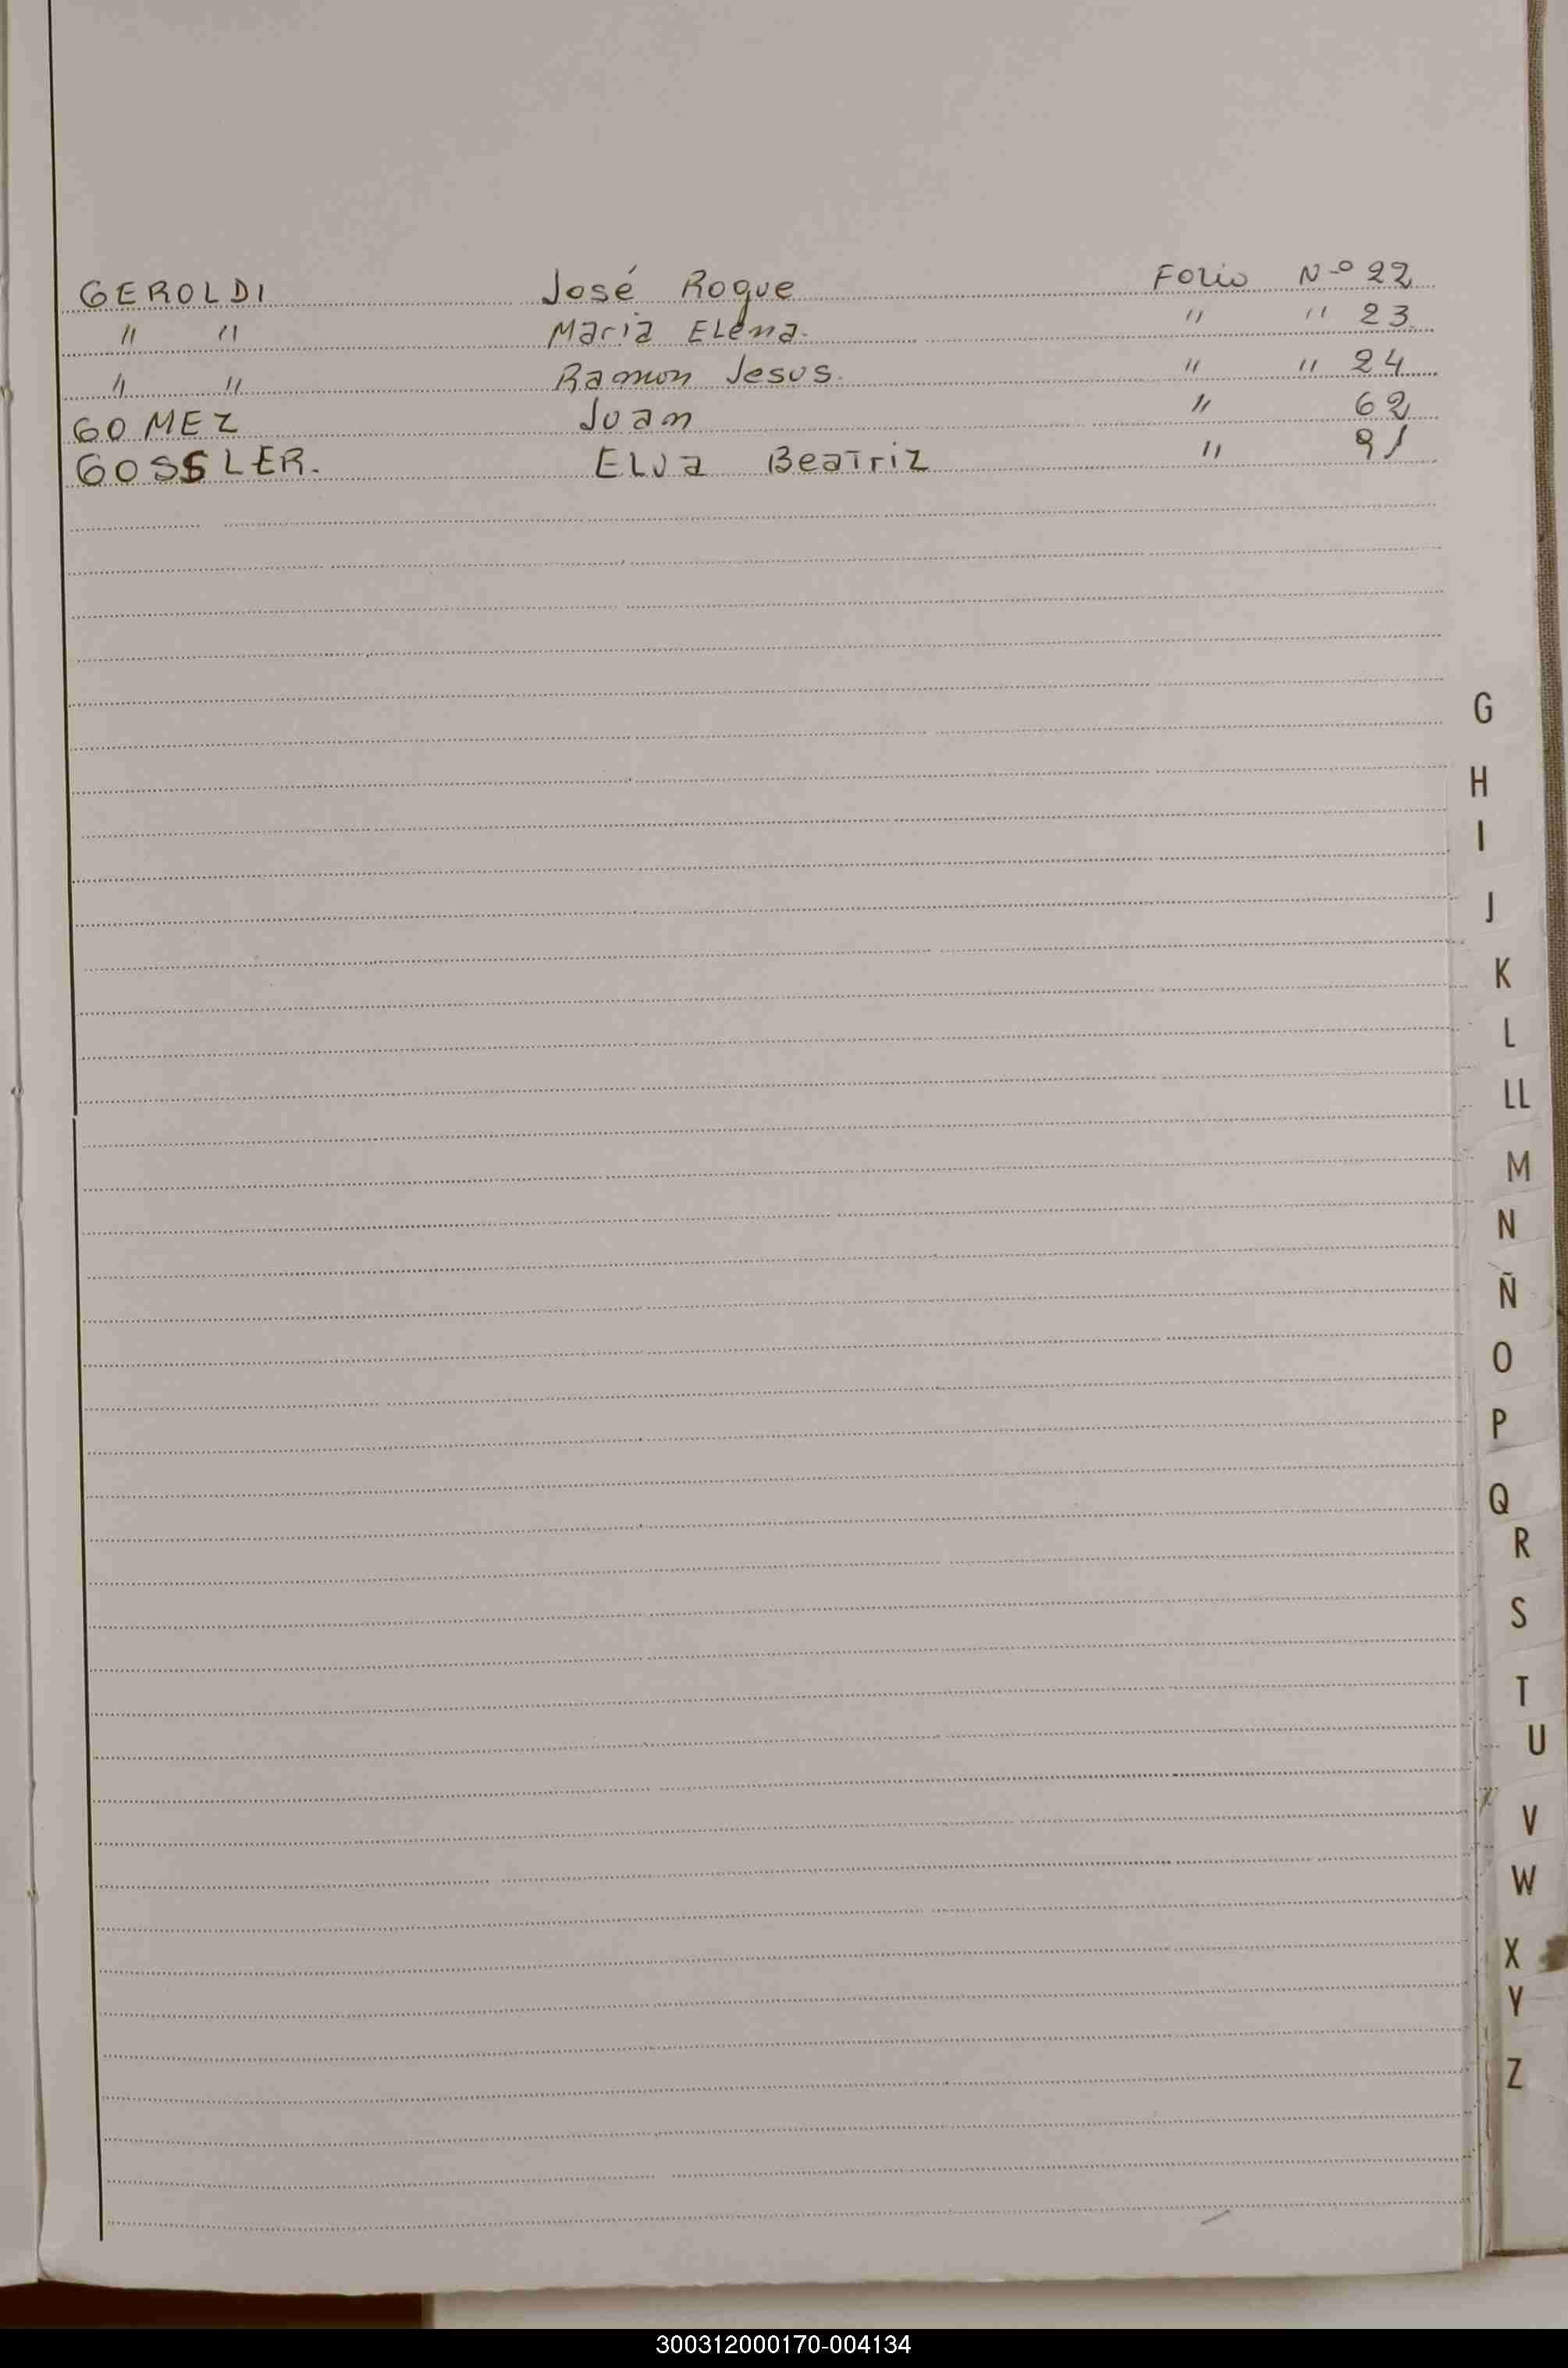 GEROLDI José Roque Folio Nº 22
" " Maria Elena. " " 23
" " Ramon Jesus. " " 24
GOMEZ Juan " 62
GOSSLER. Elva Beatriz " 91
G
H
I
J
K
L
LL
M
N
Ñ
O
P
Q
R
S
T
U
V
W
X
Y
Z
300312000170-004134